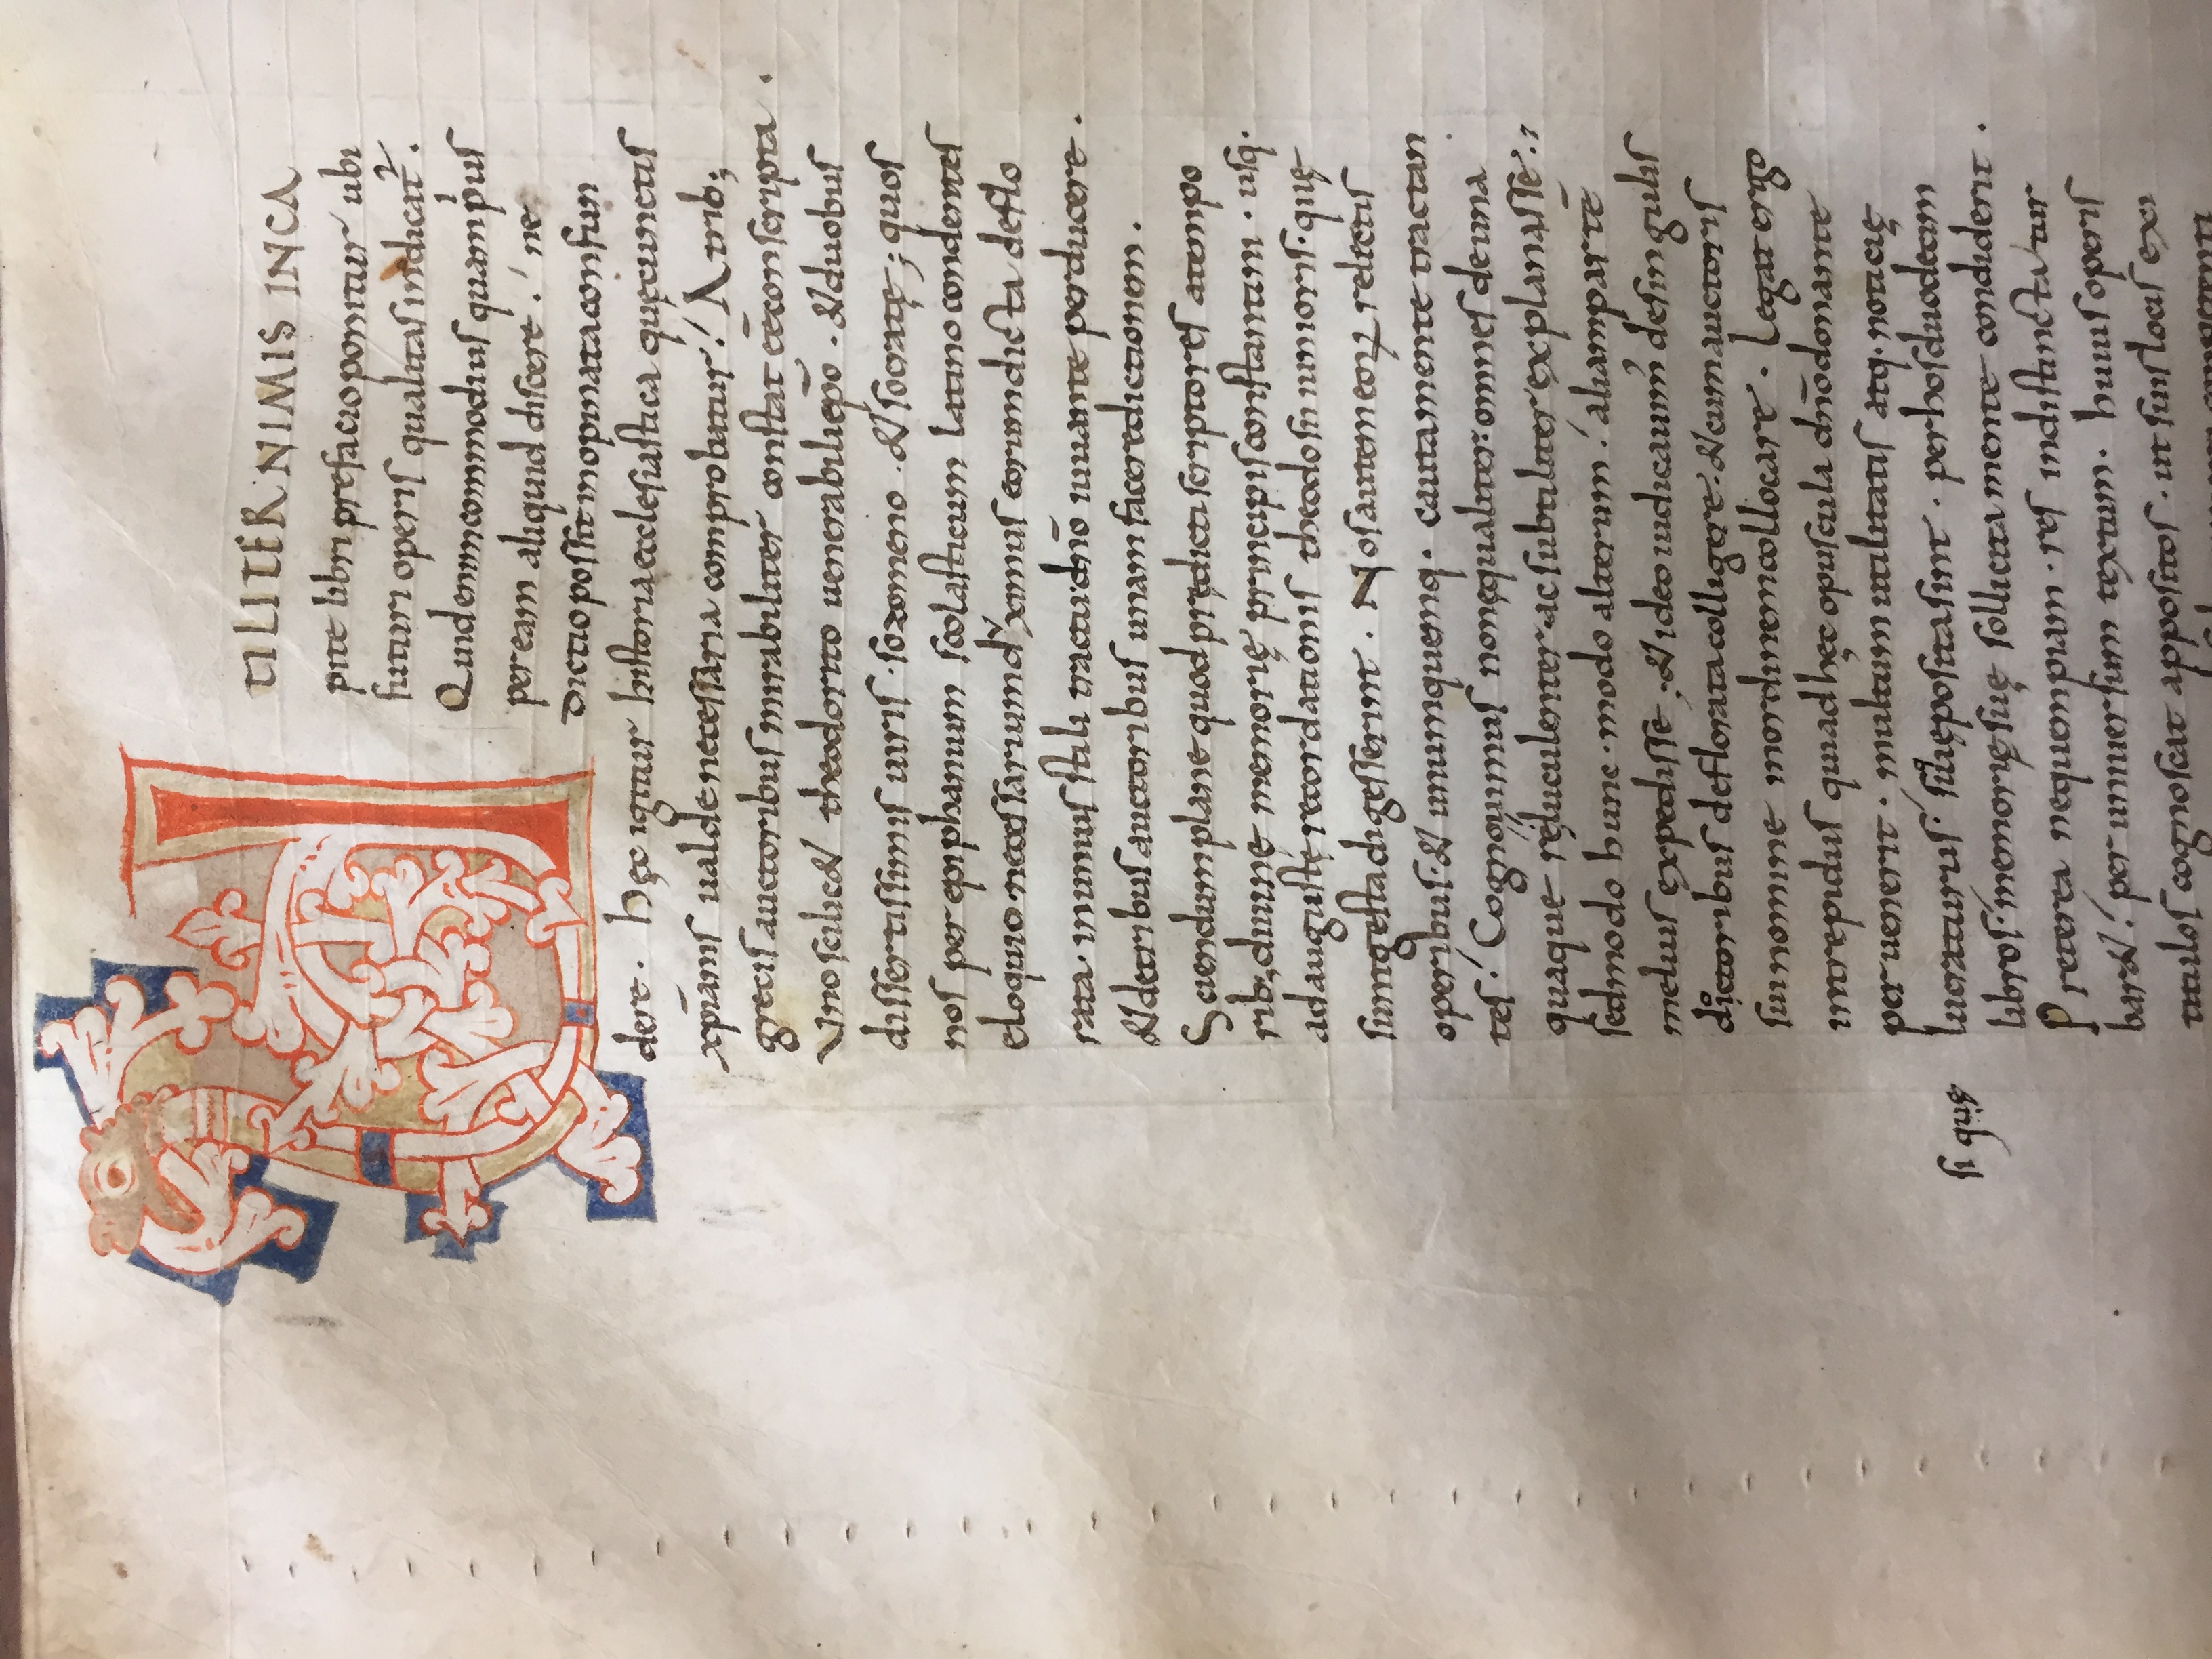 UTILITER NIMIS IN CA
pite libri prefacio ponitur ubi
futuri operis qualitas indicat᷑.
Quidem incommodius quampius
per eam aliquid discere! ne
dictio possit inopinata confun
dere. hęc igitur historia ecclesiastica quę cunctis
xp̄ianis ualde necessaria comprobatur! A trib;
grecis auctoribus mirabiliter constat eē conscripta.
Uno scilic& theodorito uenerabili ep̄o. & duobus
dissertissimis uiris. sozomeno. & socratę; quos
nos per epiphanium scolasticum latino condentes
eloquio necessarium dᵛximus eorum dicta deflo
rata. in unius stili tractū dn̄o iuuante perducere.
& de tribus auctoribus unam facere dictionem.
Sciendum plane quod prędicti scriptores a tempo
rib; diuinę memorię principis constantini. usq.
ad augustę recordationis theodosii iunioris. quę
sunt gesta digesserint. Nos autem eoꝝ relectis
operibus. & unumquemq. cauta mente tractan
tes! Cognouimus non ęqualiter omnes de una
quaque rę luculenter ac subtiliter explanasse:,
sed modo hunc. modo alterum! aliam partē
melius expedisse; & ideo iudicauim' de singulis
doctoribus deflorata colligere. & cum auctoris
sui nomine in ordinem collocare. Legat ergo
intrepidus qui ad hęc opuscula dn̄o donante
peruenerit. multum utilitatis atq. noticię
lucraturus! si quę posita sunt. per hos duodecim
si quę
libros! memorię suę sollicita mente condiderit.
Preterea ne quempiam. res indistincta tur
bar&! per uniuersum textum. huius operis
titulos cognoscat appositos. in suis locis exi